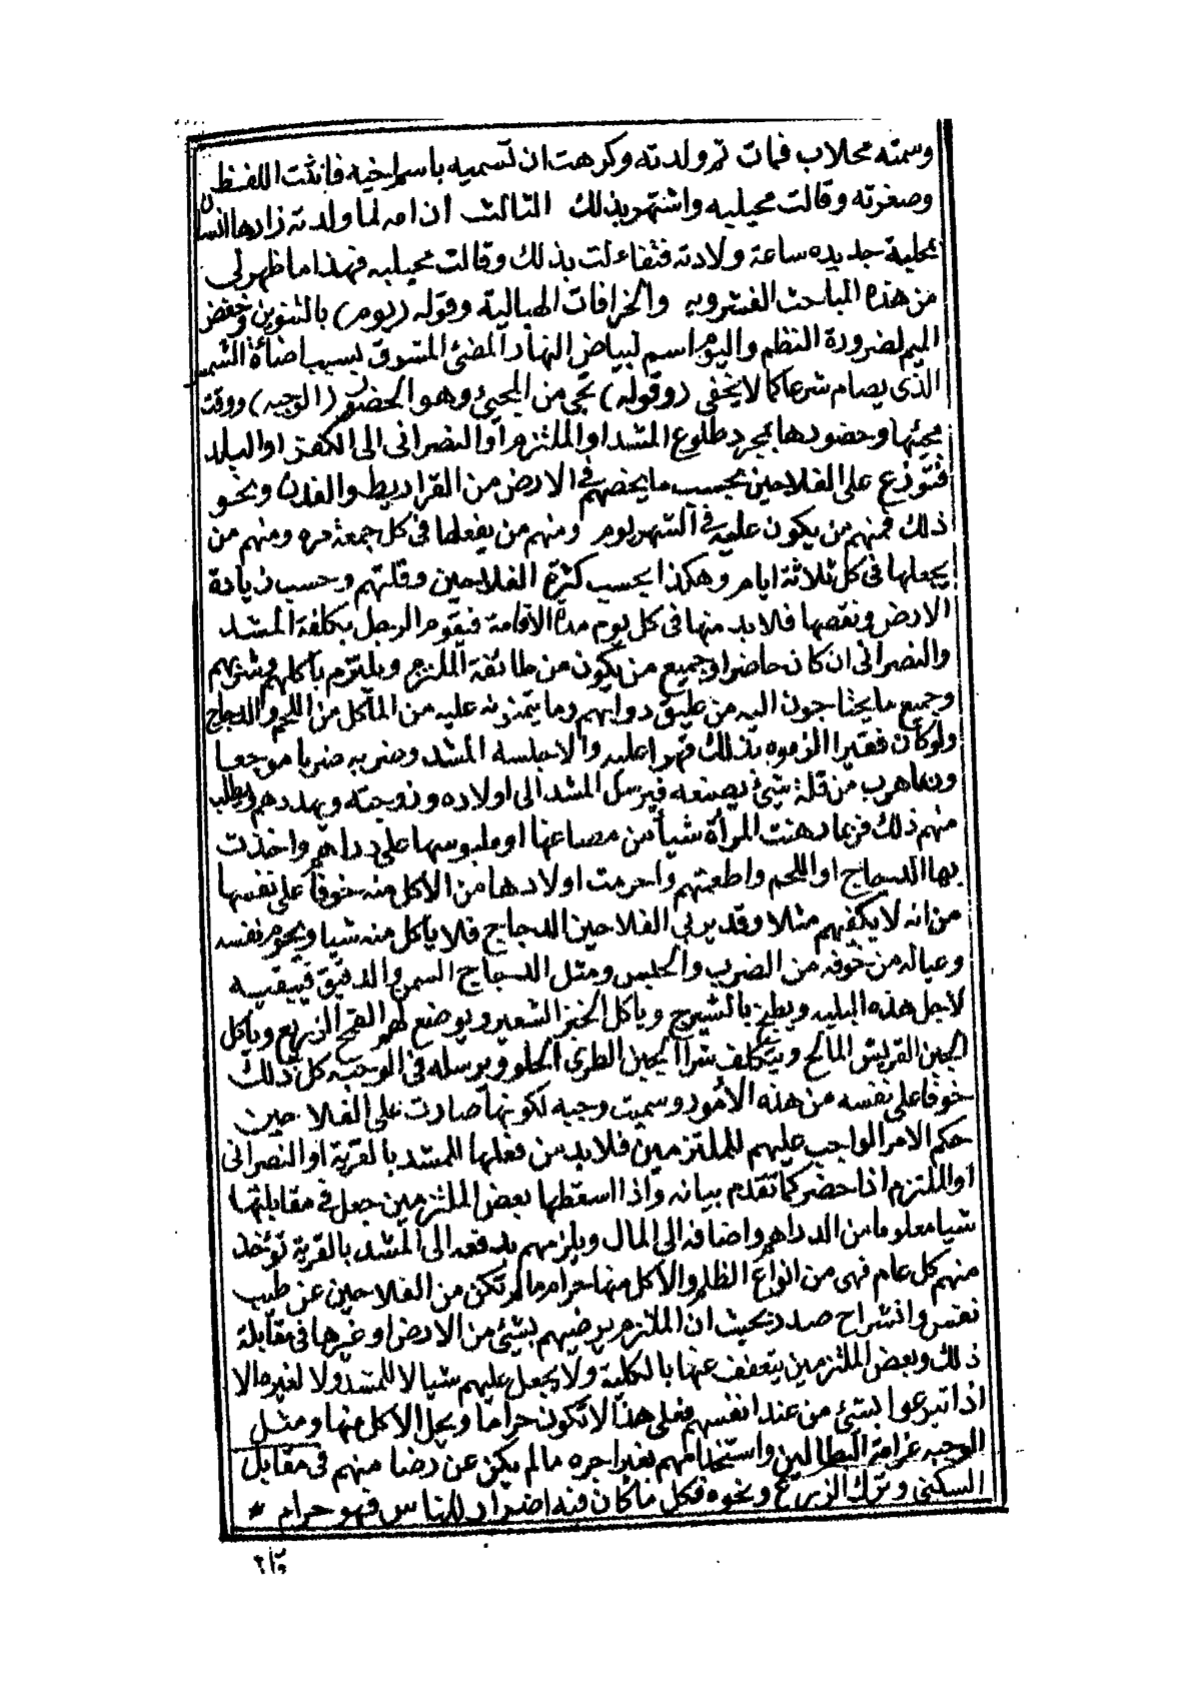 وسمته محلاب فمات ثم ولدته وكرهت ان تسميه باسم اخيه فانثت اللفظ
وصغرته وقالت محيلبه واشتهر بذلك الثالث ان امه لما ولدته زادها انسان
بمحلبة جديده ساعة ولادته فتفاءلت بذلك وقالت محيلبه فهذا ما ظهر لي
من هذه المباحث الفشرويه والخرافات الهبالية وقوله (يوم) بالتنوين وخفض
الميم لضرورة النظم واليوم اسم لبياض النهار المضئ المشرق بسبب اضاءة الشمس
الذى يصام شرعا كما لا يخفى (وقوله) تجى من المجيئ وهو الحضور (الوجبه) ووقت
مجيئها وحضورها بمجرد طلوع المشد او الملتزم او النصرانى الى الكفر او البلد
فتوزع على الفلاحين بحسب ما يخصهم فى الارض من القراريط والفدن ونحو
ذلك فمنهم من يكون عليه فى الشهر يوم ومنهم من يفعلها فى كل جمعة مره ومنهم من
يجعلها فى كل ثلاثة ايام وهكذا بحسب كثرة الفلاحين وقلتهم وحسب زيادة
الارض ونقصها فلا بد منها فى كل يوم مدة الاقامة فيقوم الرجل بكلفة المشد
والنصرانى ان كان حاضرا وجميع من يكون من طائفة الملتزم ويلتزم باكلهم وشربهم
وجميع ما يحتاجون اليه من عليق دوابهم وما يتمنونه عليه من المأكل من اللحم والدجاج
ولو كان فقيرا الزموه بذلك قهرا عليه والا حبسه المشد وضربه ضربا موجعا
وربما هرب من قلة شيئ يصنعه فيرسل المشد الى اولاده وزوجته ويهددهم ويطلب
منهم ذلك فربما رهنت المرأة شيأ من مصاغها او ملبوسها على دراهم واخذت
بها الدجاج او اللحم واطعمتهم واحرمت اولادها من الاكل منه خوفا على نفسها
من انه لا يكفهم مثلا وقد يربى الفلاحين الدجاج فلا يأكل منه شيا ويحرم نفسه
وعياله من خوفه من الضرب والحبس ومثل الدجاج السمن والدقيق فيبقيه
لاجل هذه البليه ويطبخ بالشيرج ويأكل الخبز الشعير ويوضع لهم القمح الزريع ويأكل
الجبن القريش المالح ويتكلف شرا الجبن الطرى الحلو ويرسله فى الوجبه كل ذلك
خوفا على نفسه من هذه الأمور وسميت وجبه لكونها صارت على الفلاحين
حكم الامر الواجب عليهم للملتزمين فلا بد من فعلها للمشد بالقرية او النصرانى
او الملتزم اذا حضر كما تقدم بيانه واذا اسقطها بعض الملتزمين جعل فى مقابلتها
شيا معلوما من الدراهم واضافه الى المال ويلزمهم بدفعه الى المشد بالقرية تؤخذ
منهم كل عام فهى من انواع الظلم والاكل منها حرام ما لم تكن من الفلاحين عن طيب
نفس وانشراح صدر بحيث ان الملتزم يرضيهم بشئ من الارض او غيرها فى مقابلة
ذلك وبعض الملتزمين يتعفف عنها بالكلية ولا يجعل عليهم شيا لا للمشد ولا لغيره الا
اذا تبرعوا بشئ من عند انفسهم فعلى هذا لا تكون حراما ويحل الاكل منها ومثل
الوجبه غرامة البطالين واستخدامهم بغير اجره ما لم يكن عن رضا منهم فى مقابل
السكنى وترك الزريع ونحوه فكل ما كان فيه اضرار للناس فهو حرام *